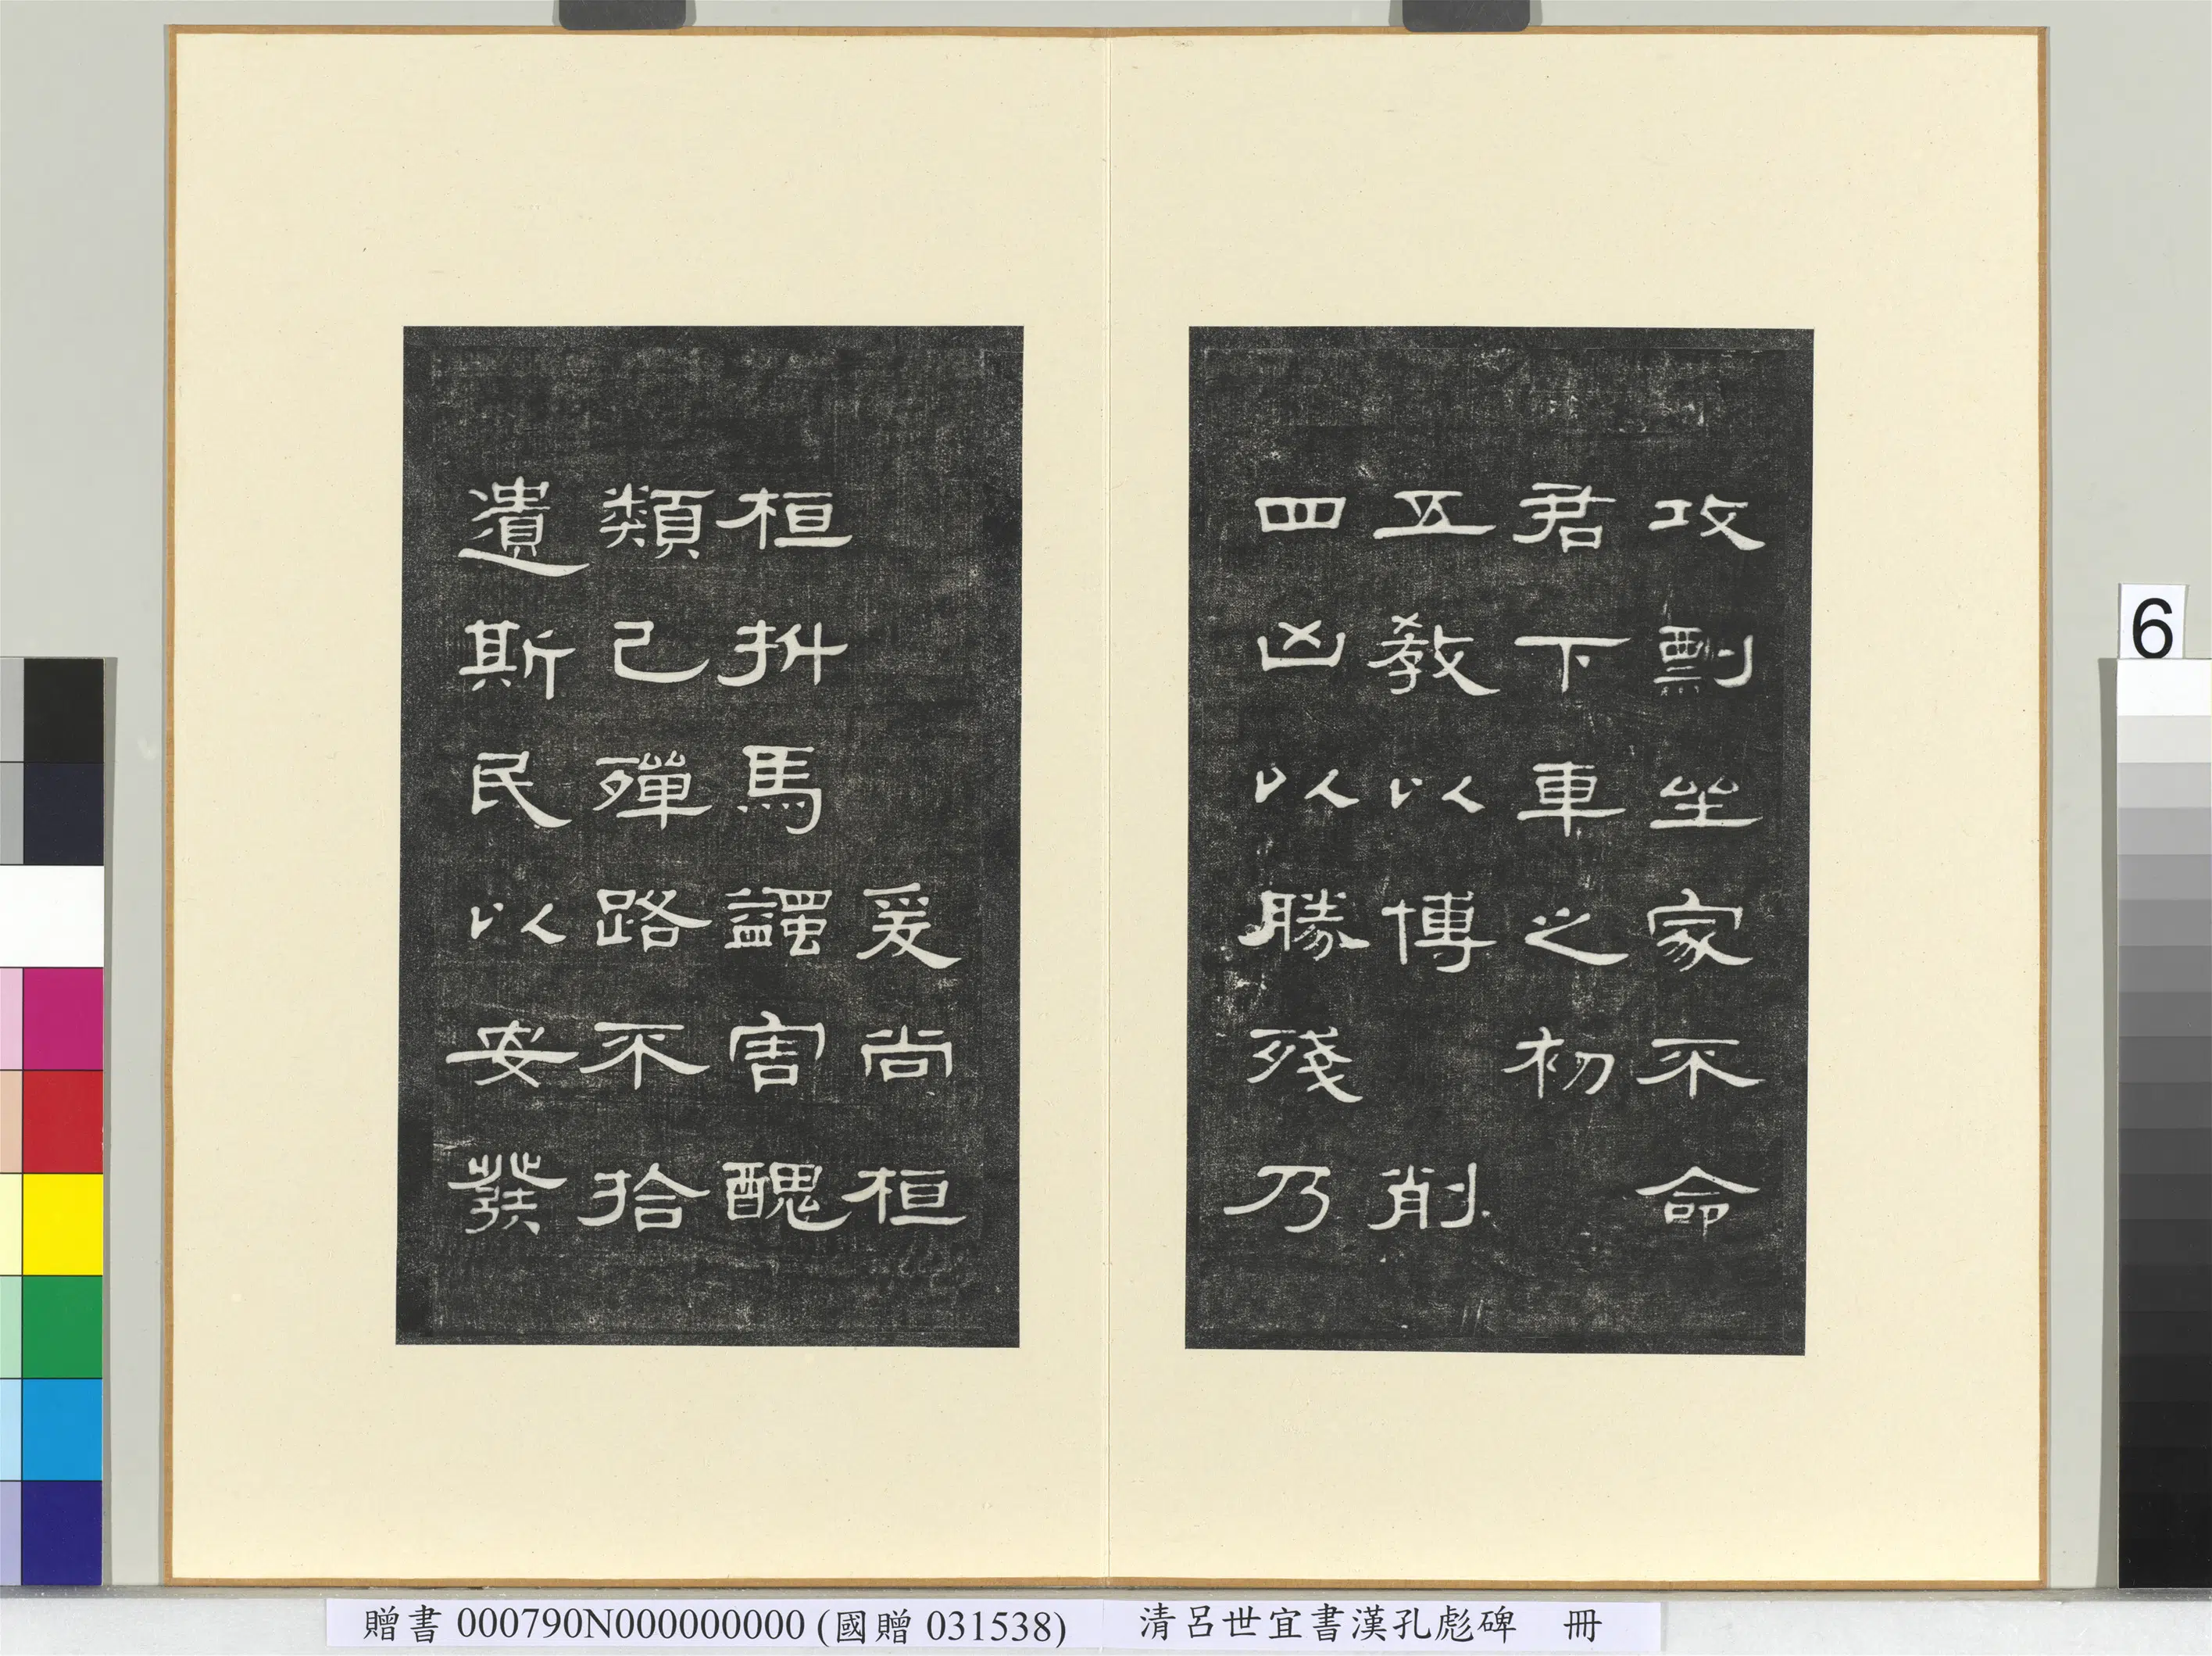 攻剽坐家不命
君下車之初
五教以博 削
四凶以勝殘乃
爰尚桓
桓抍馬蠲害醜
類己殫路不拾
遺斯民以安發
6
贈書 000790N000000000 (國贈 031538) 清呂世宜書漢孔彪碑 冊